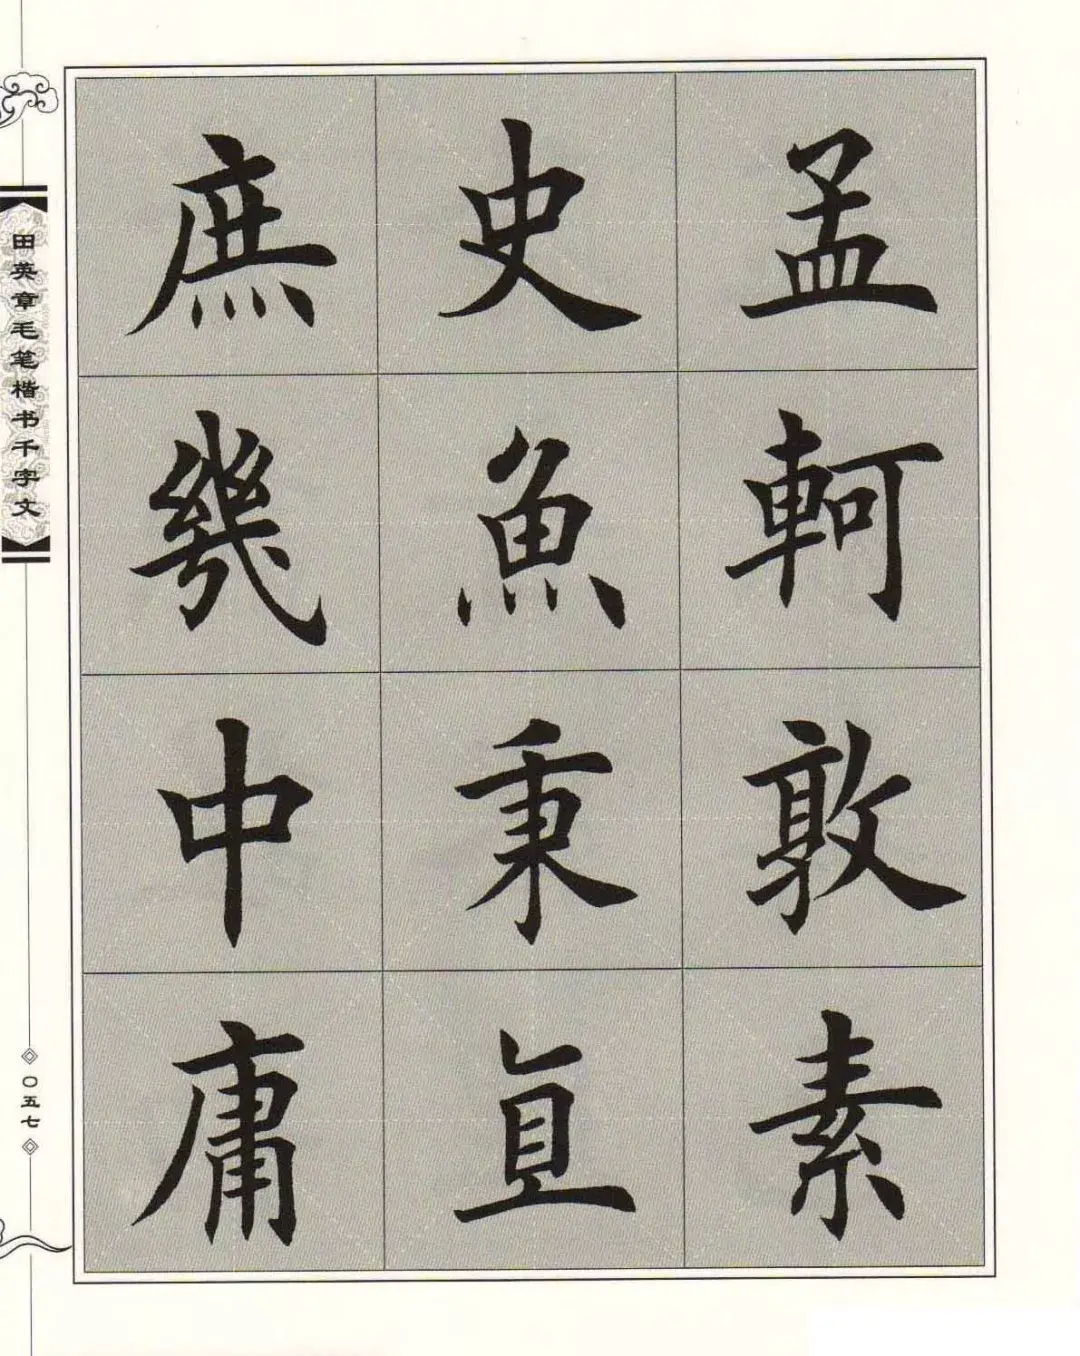 孟軻敦素
史魚秉直
庶幾中庸
田英章毛笔楷书千字文
〇五七